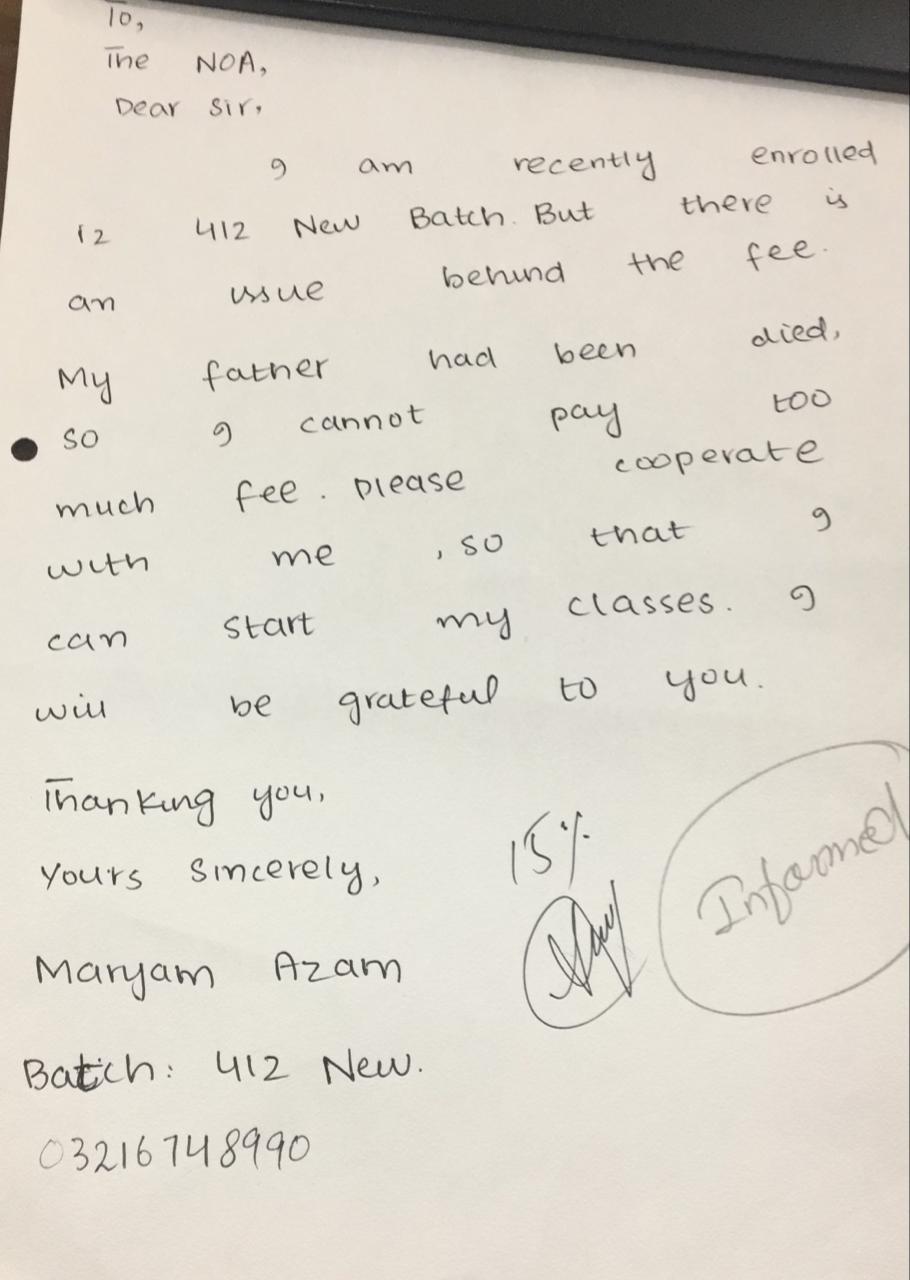 To,
The NOA,
Dear Sir,
I am recently enrolled
12 412 New Batch. But there is
an issue behind the fee.
My father had been died,
so I cannot pay too
much fee. please cooperate
with me, so that I
can start my classes. I
will be grateful to you.
Thanking you,
Yours Sincerely,
15%
Informed
Maryam Azam
Batch: 412 New.
03216748990